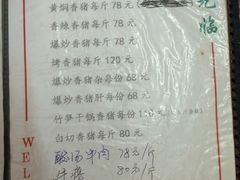 黄焖香猪每斤 78 元
香辣香猪每斤 78 元
爆炒香猪每斤 78 元
烤香猪每斤 120 元
爆炒香猪杂每份 68 元
爆炒香猪肝每份 68 元
竹笋干锅香猪每份 元
白切香猪每斤 80 元
酸汤牛肉 78元/斤
牛瘪 88元/斤
光临
WEL